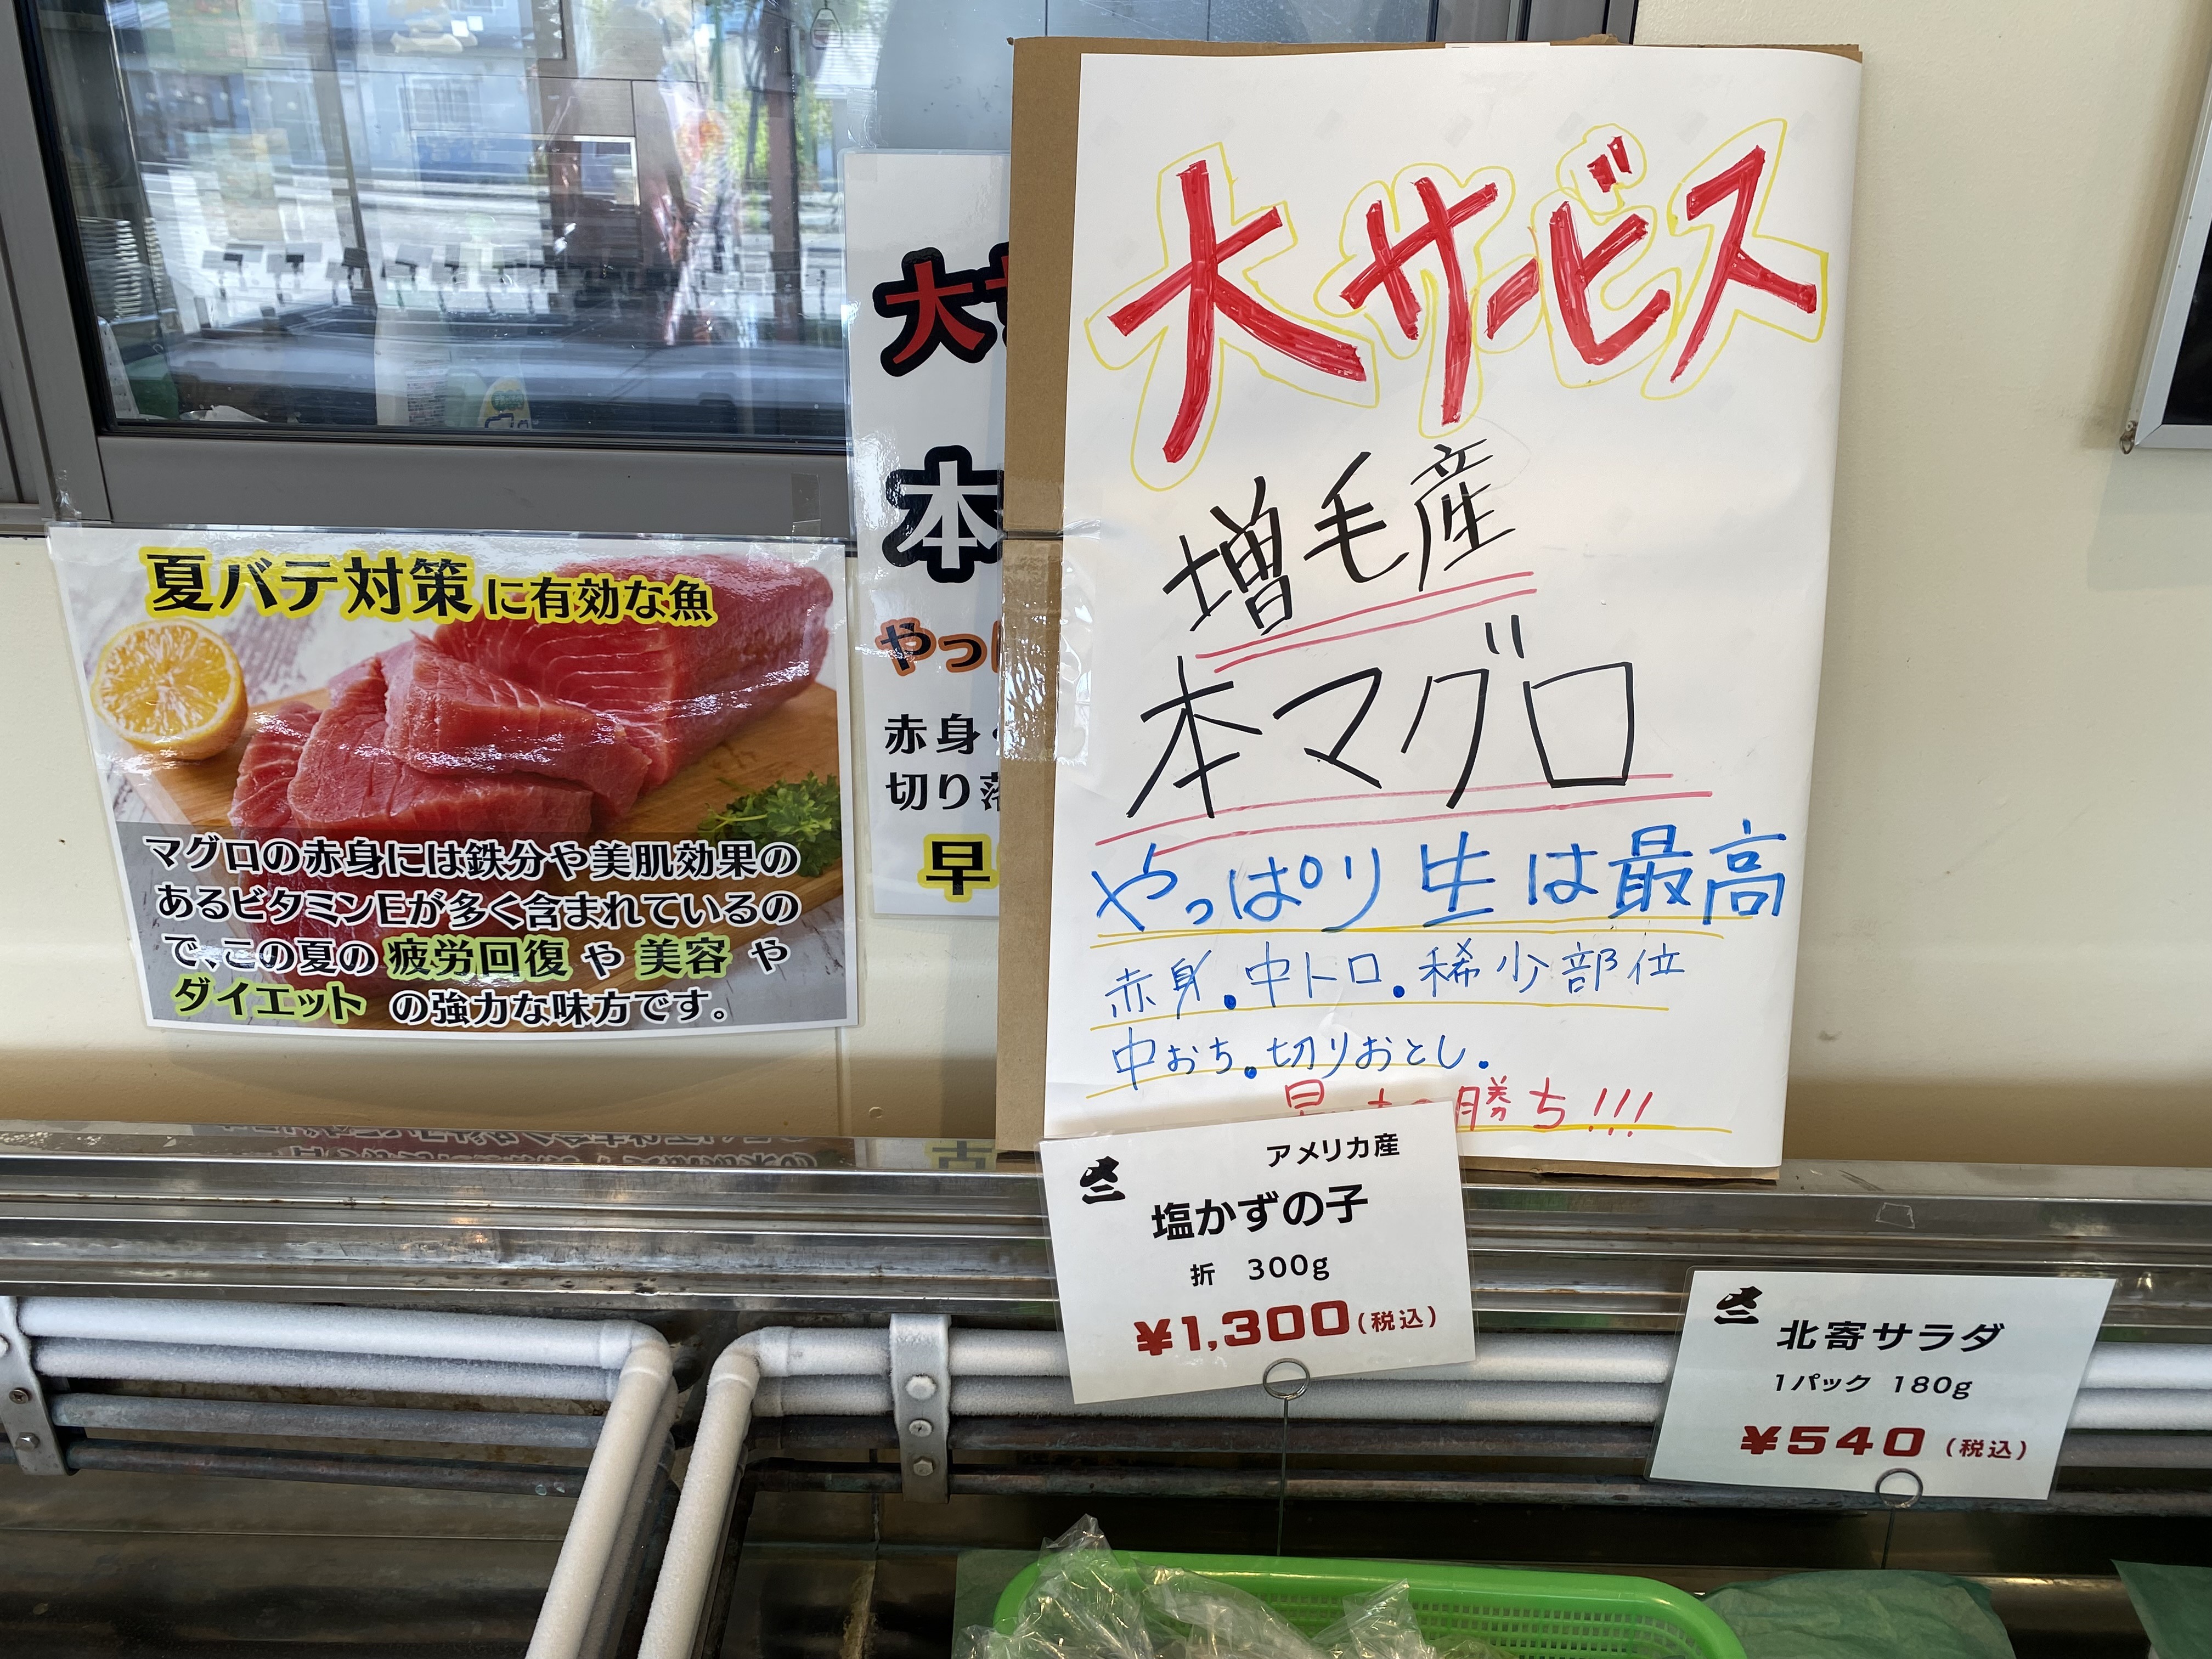 夏バテ対策に有効な魚
マグロの赤身には鉄分や美肌効果の
あるビタミンEが多く含まれているの
で、この夏の疲労回復や美容や
ダイエットの強力な味方です。
大
本
やっ
赤身
切り落
早
大サービス
増毛産
本マグロ
やっぱり生は最高
赤身.中トロ.稀少部位
中おち.切りおとし.
勝ち!!!
アメリカ産
塩かずの子
折 300g
¥1,300(税込)
北寄サラダ
1パック 180g
¥540(税込)